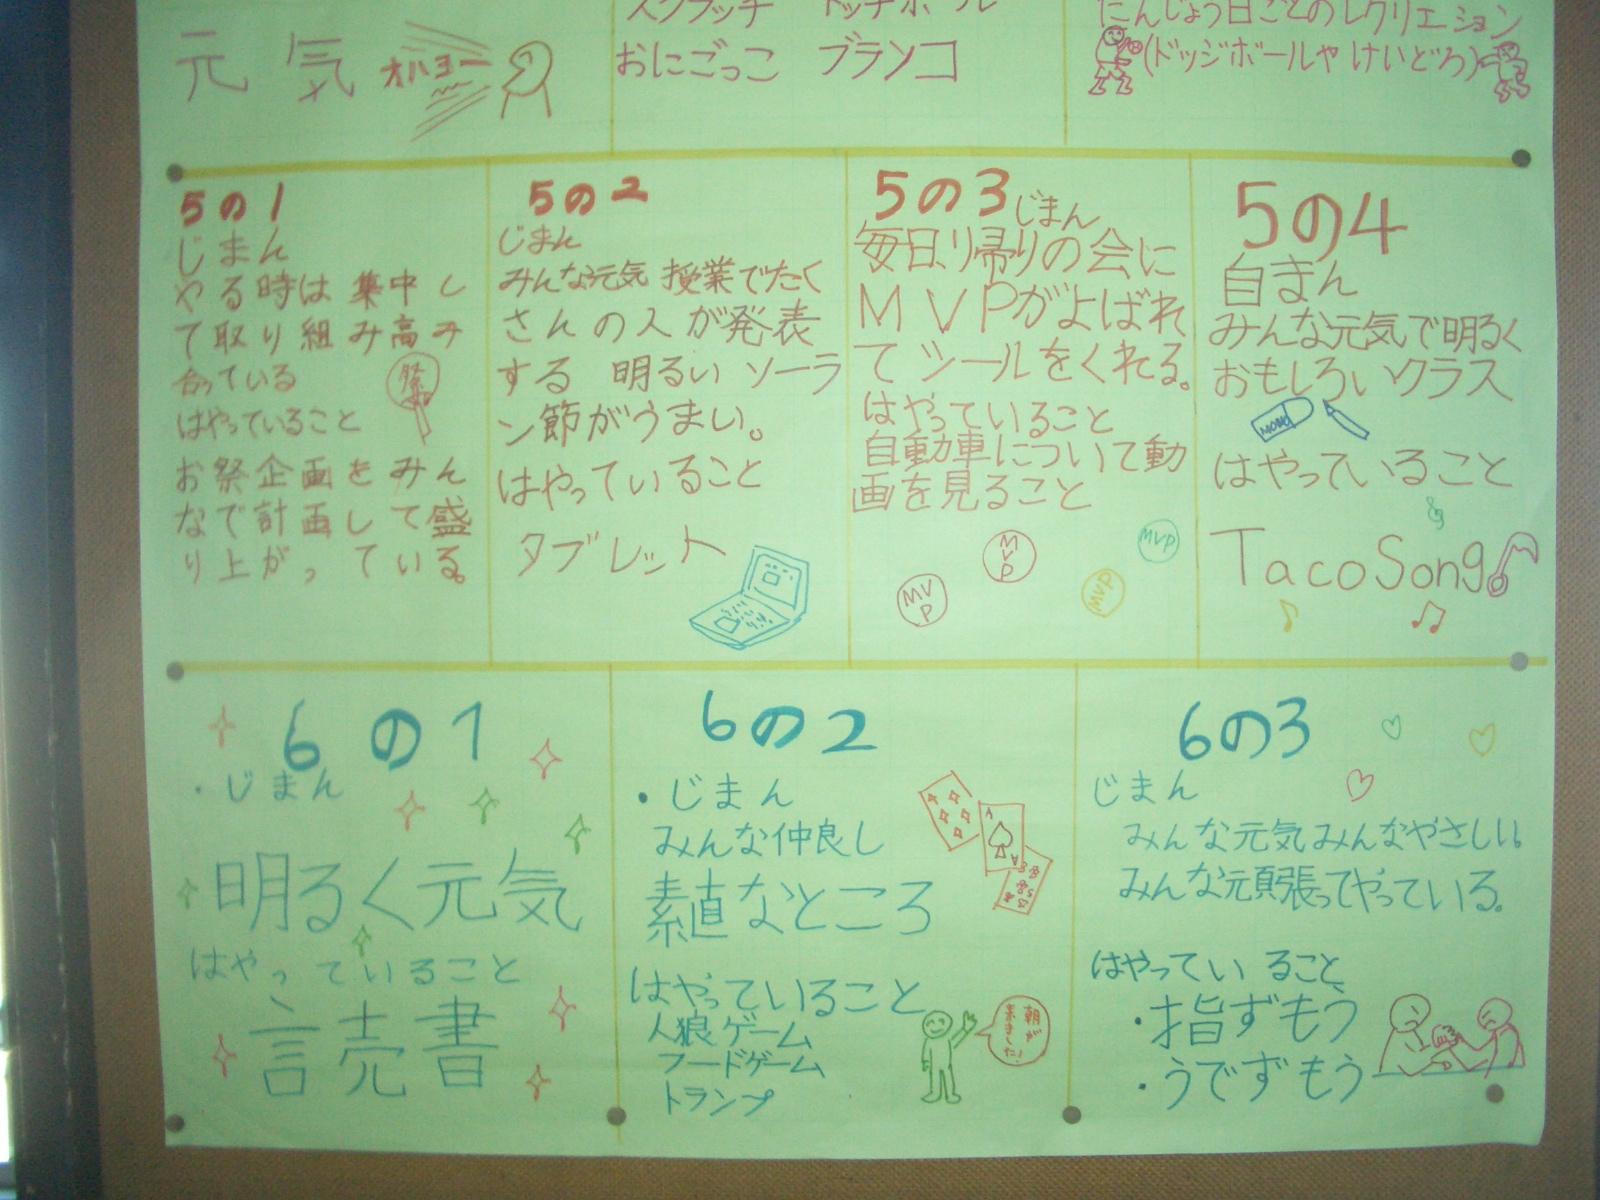 元気 オハヨー
スクラッチ ドッチボール
おにごっこ ブランコ
たんじょう日ごとのレクリエーション
(ドッジボールや けいどろ)
5の1
じまん
やる時は集中し
て取り組み高み
合っている
祭
はやっていること
お祭企画をみん
なで計画して盛
り上がっている。
5の2
じまん
みんな元気 授業でたく
さんの人が発表
する 明るい ソーラ
ン節がうまい。
はやっていること
タブレット
5の3 じまん
毎日、帰りの会に
MVPがよばれ
てシールをくれる。
はやっていること
自動車について動
画を見ること
MVP
MVP
MVP
MVP
5の4
自まん
みんな元気で明るく
おもしろいクラス
MONO
はやっていること
TacoSong
6の1
・じまん
明るく元気
はやっていること
読書
6の2
・じまん
みんな仲良し
素直なところ
はやっていること
人狼ゲーム
フードゲーム
トランプ
朝が
来ました!
6の3
じまん
みんな元気みんなやさしい。
みんな元頑張ってやっている。
はやっていること
・指ずもう
・うでずもう